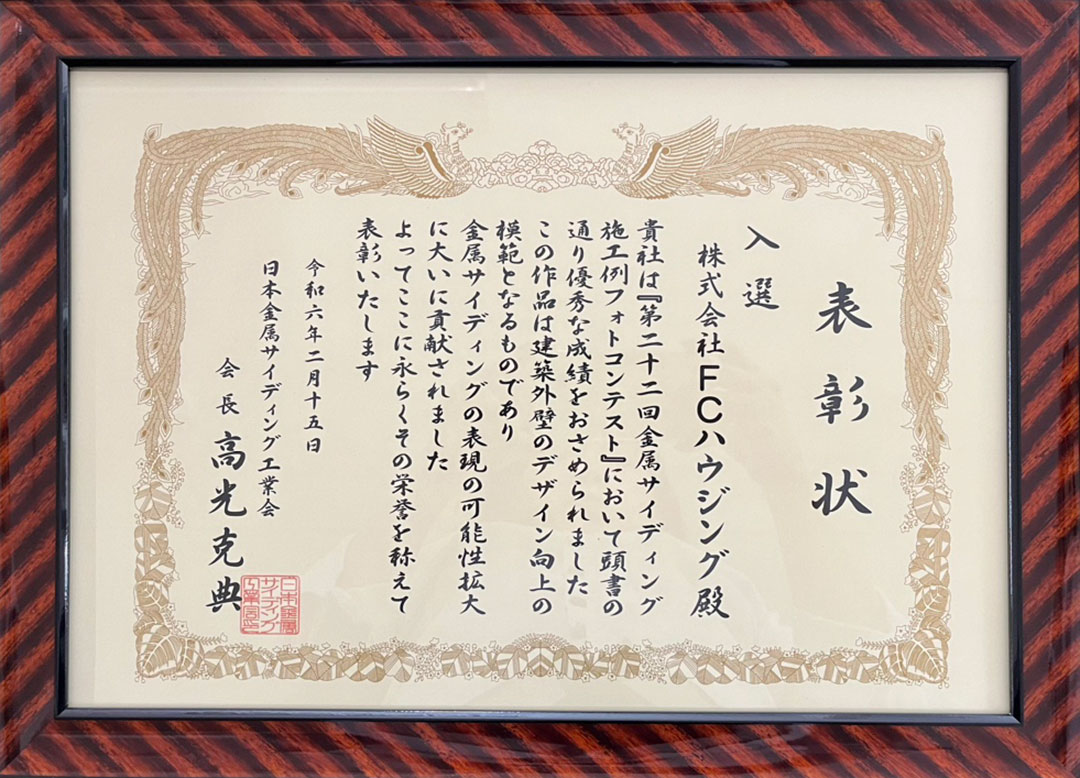 表彰状
入選
株式会社FCハウジング殿
貴社は『第二十二回金属サイディング
施工例フォトコンテスト』において頭書の
通り優秀な成績をおさめられました
この作品は建築外壁のデザイン向上の
模範となるものであり
金属サイディングの表現の可能性拡大
に大いに貢献されました
よってここに永らくその栄誉を称えて
表彰いたします
令和六年二月十五日
日本金属サイディング工業会
会長 高光克典
日本金属
サイディング
工業会印